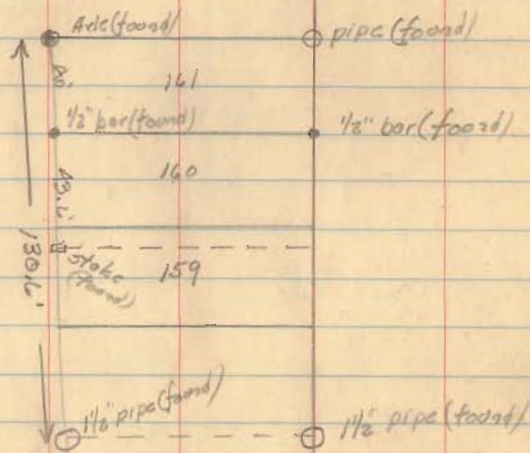 Axle (found)
pipe (found)
40'
161
1/2" bar (found)
1/2" bar (found)
160
43.6'
130.6'
stake
(found)
159
1 1/2" pipe (found)
1 1/2" pipe (found)